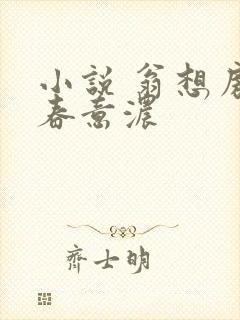 小說 翁想房
春意濃
齊士明